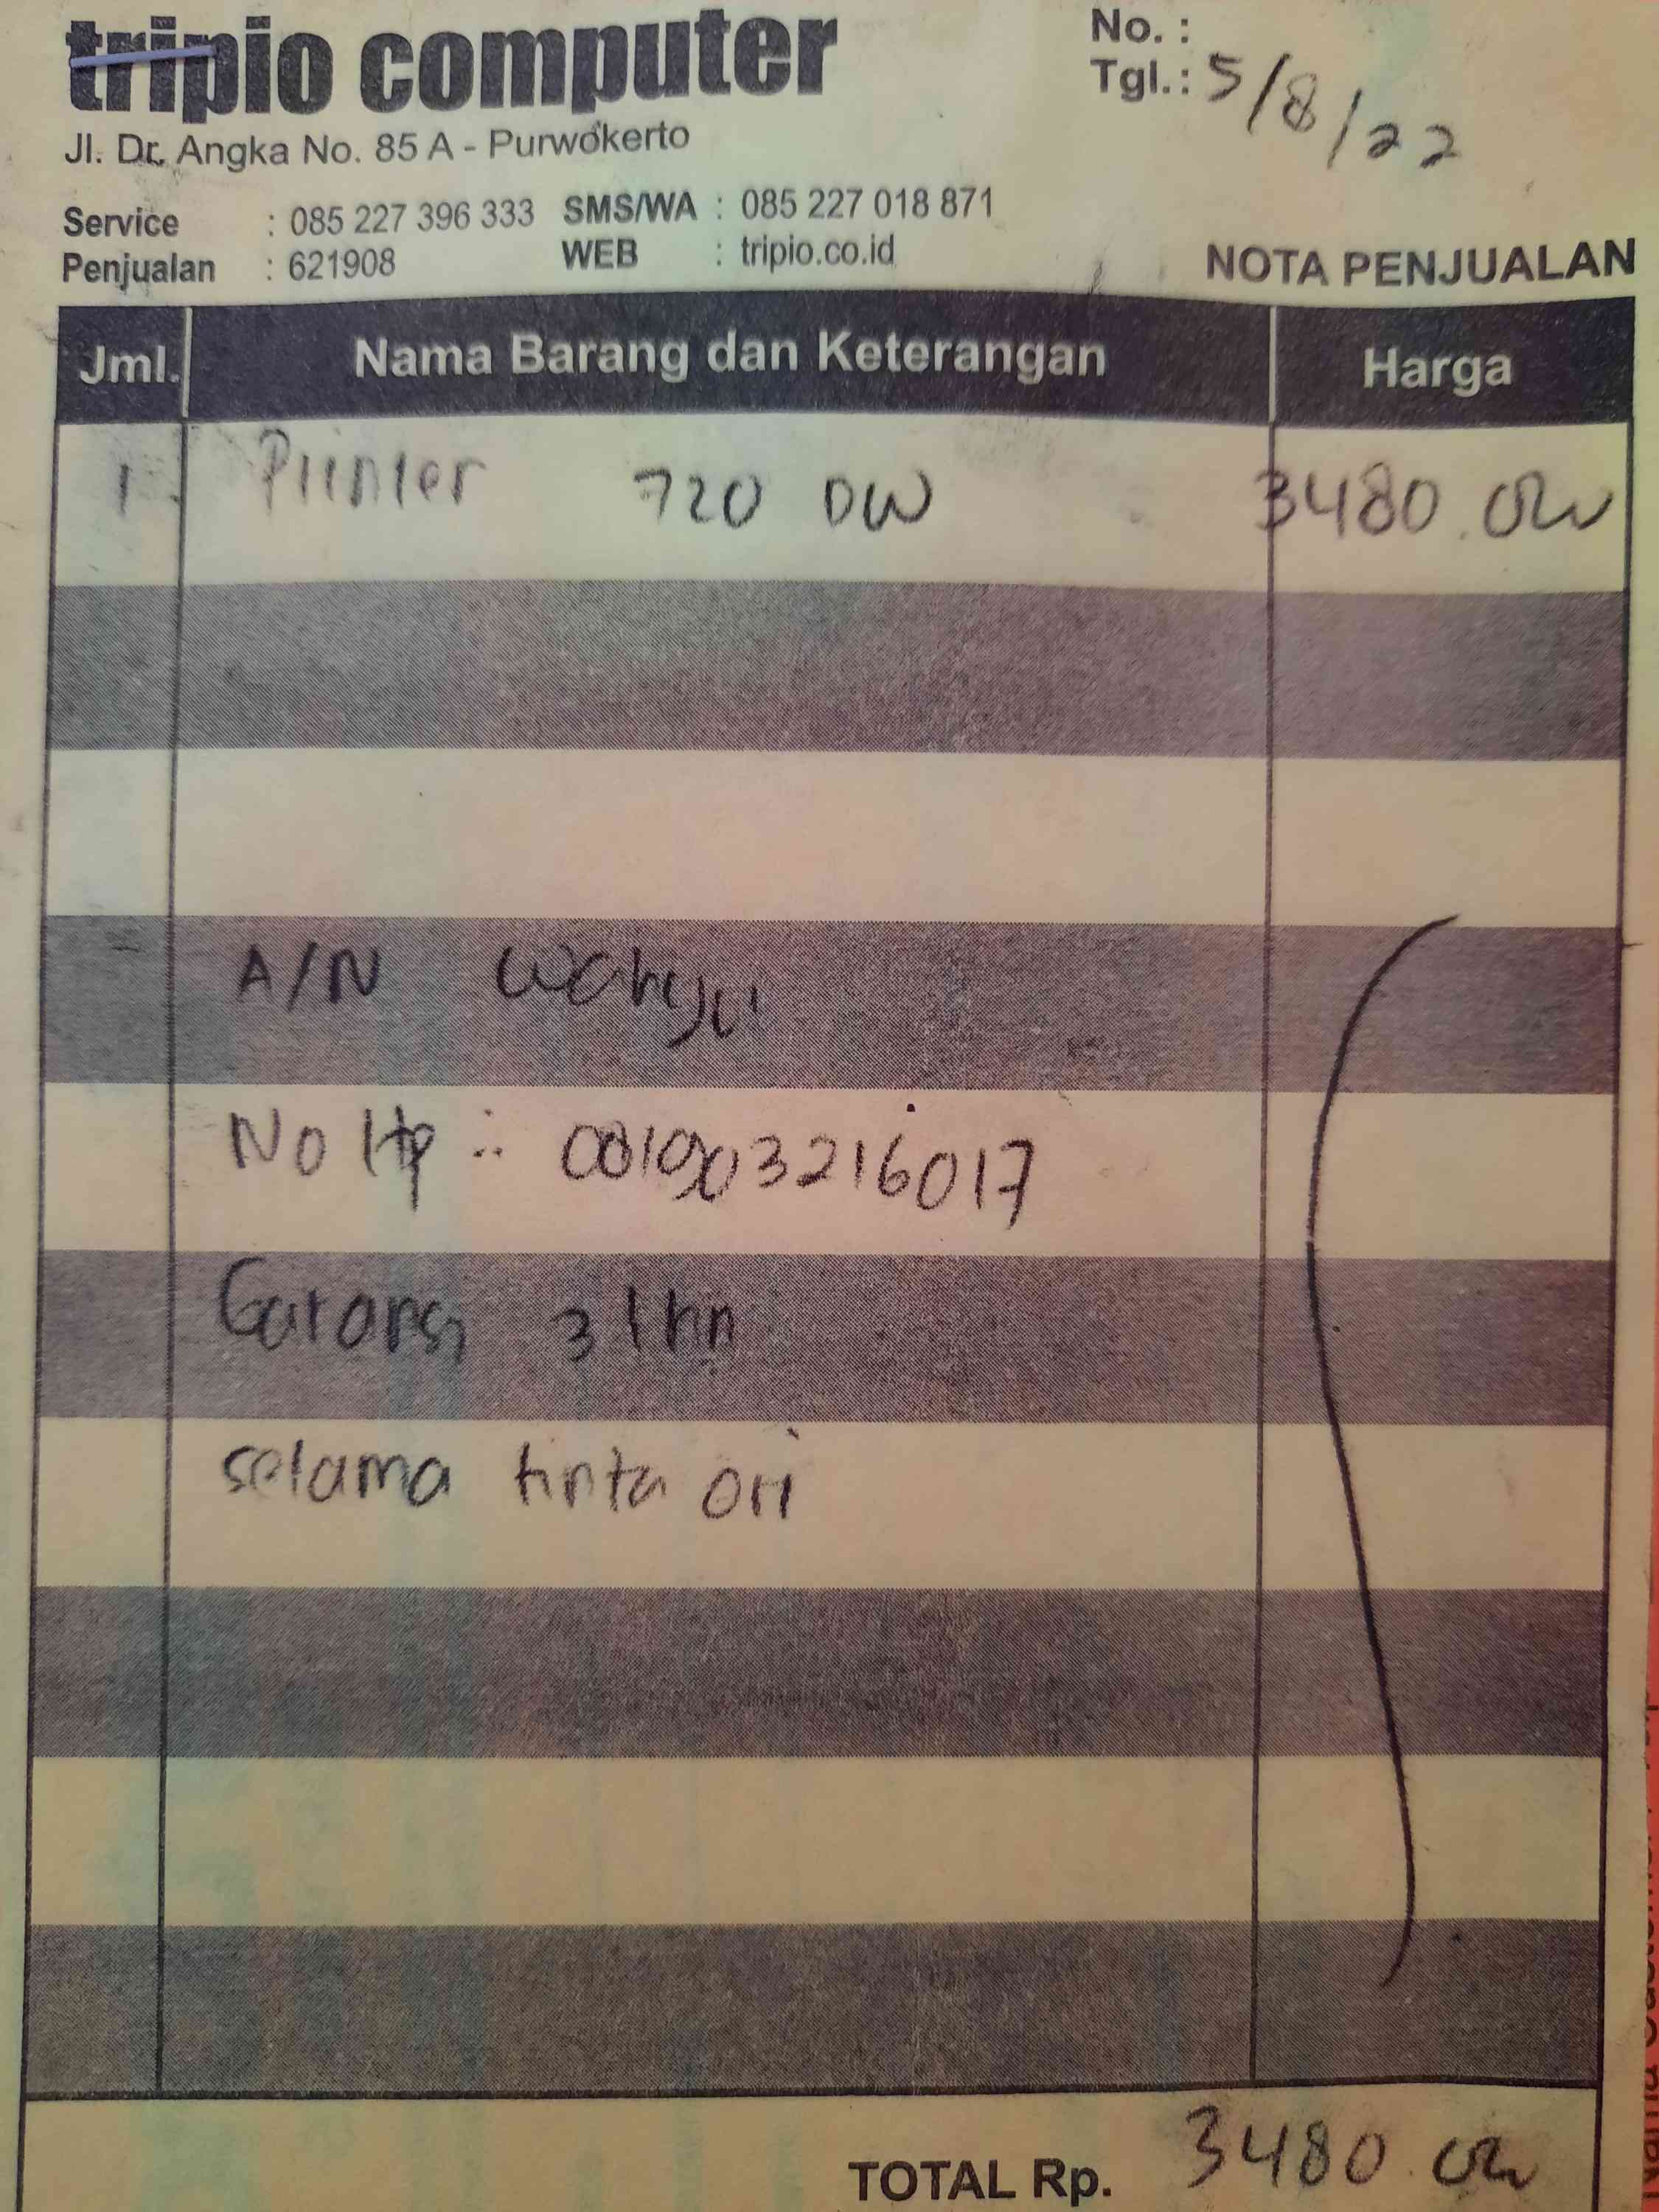 tripio computer
No. :
Tgl. : 5/8/22
Jl. Dr. Angka No. 85 A - Purwokerto
Service : 085 227 396 333 SMS/WA : 085 227 018 871
Penjualan : 621908 WEB : tripio.co.id
NOTA PENJUALAN
Jml. Nama Barang dan Keterangan Harga
1 Printer 720 DW 3480.000
A/N Wahyu
No Hp : 081903216017
Garansi 3 thn
selama tinta ori
TOTAL Rp. 3480.000